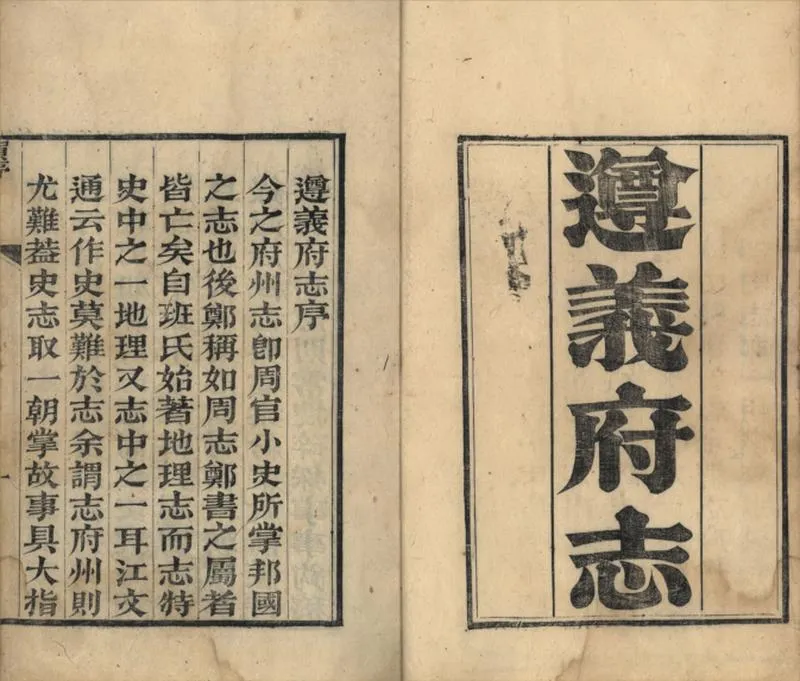 遵義府志
遵義府志序
今之府州志卽周官小史所掌邦國
之志也後鄭稱如周志鄭書之屬者
皆亡矣自班氏始著地理志而志特
史中之一地理又志中之一耳江文
通云作史莫難於志余謂志府州則
尤難葢史志取一朝掌故事具大指